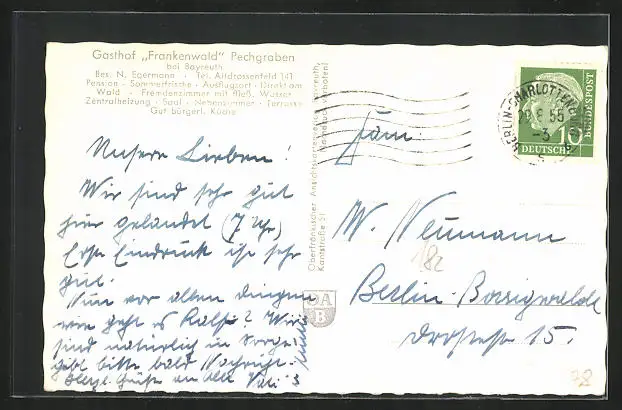 Gasthof „Frankenwald" Pechgraben
bei Bayreuth
Bes. N. Egermann · Tel. Altdrossenfeld 141
Pension · Sommerfrische · Ausflugsort · Direkt am
Wald · Fremdenzimmer mit fließ. Wasser
Zentralheizung · Saal · Nebenzimmer · Terrasse
Gut bürgerl. Küche
Unsere Lieben!
Wir sind sehr gut
hier gelandet (7 Uhr)
Erste Eindruck ist sehr
gut.
Nun vor allen dingen
wie geht es Ralf? Wir
sind natürlich in Sorge.
gebt bitte bald Nachricht.
Herzl. Grüße an alle
Oberfränkischer Ansichtskartenverlag Bayreuth,
Kantstraße 51
Nachdruck verboten!
BERLIN-CHARLOTTENBURG
55
-3
10
DEUTSCHE
BUNDESPOST
Fam.
W. Neumann
182
Berlin-Borsigwalde
15.